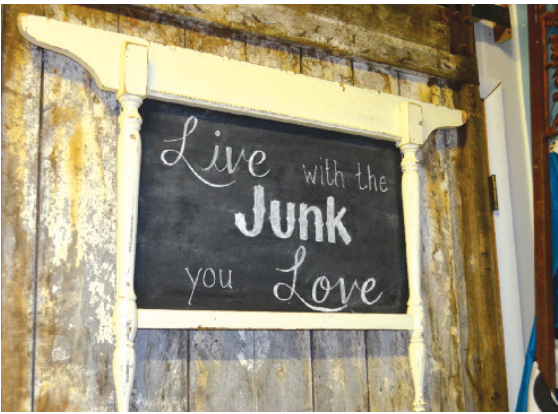 Live with the
Junk
you Love